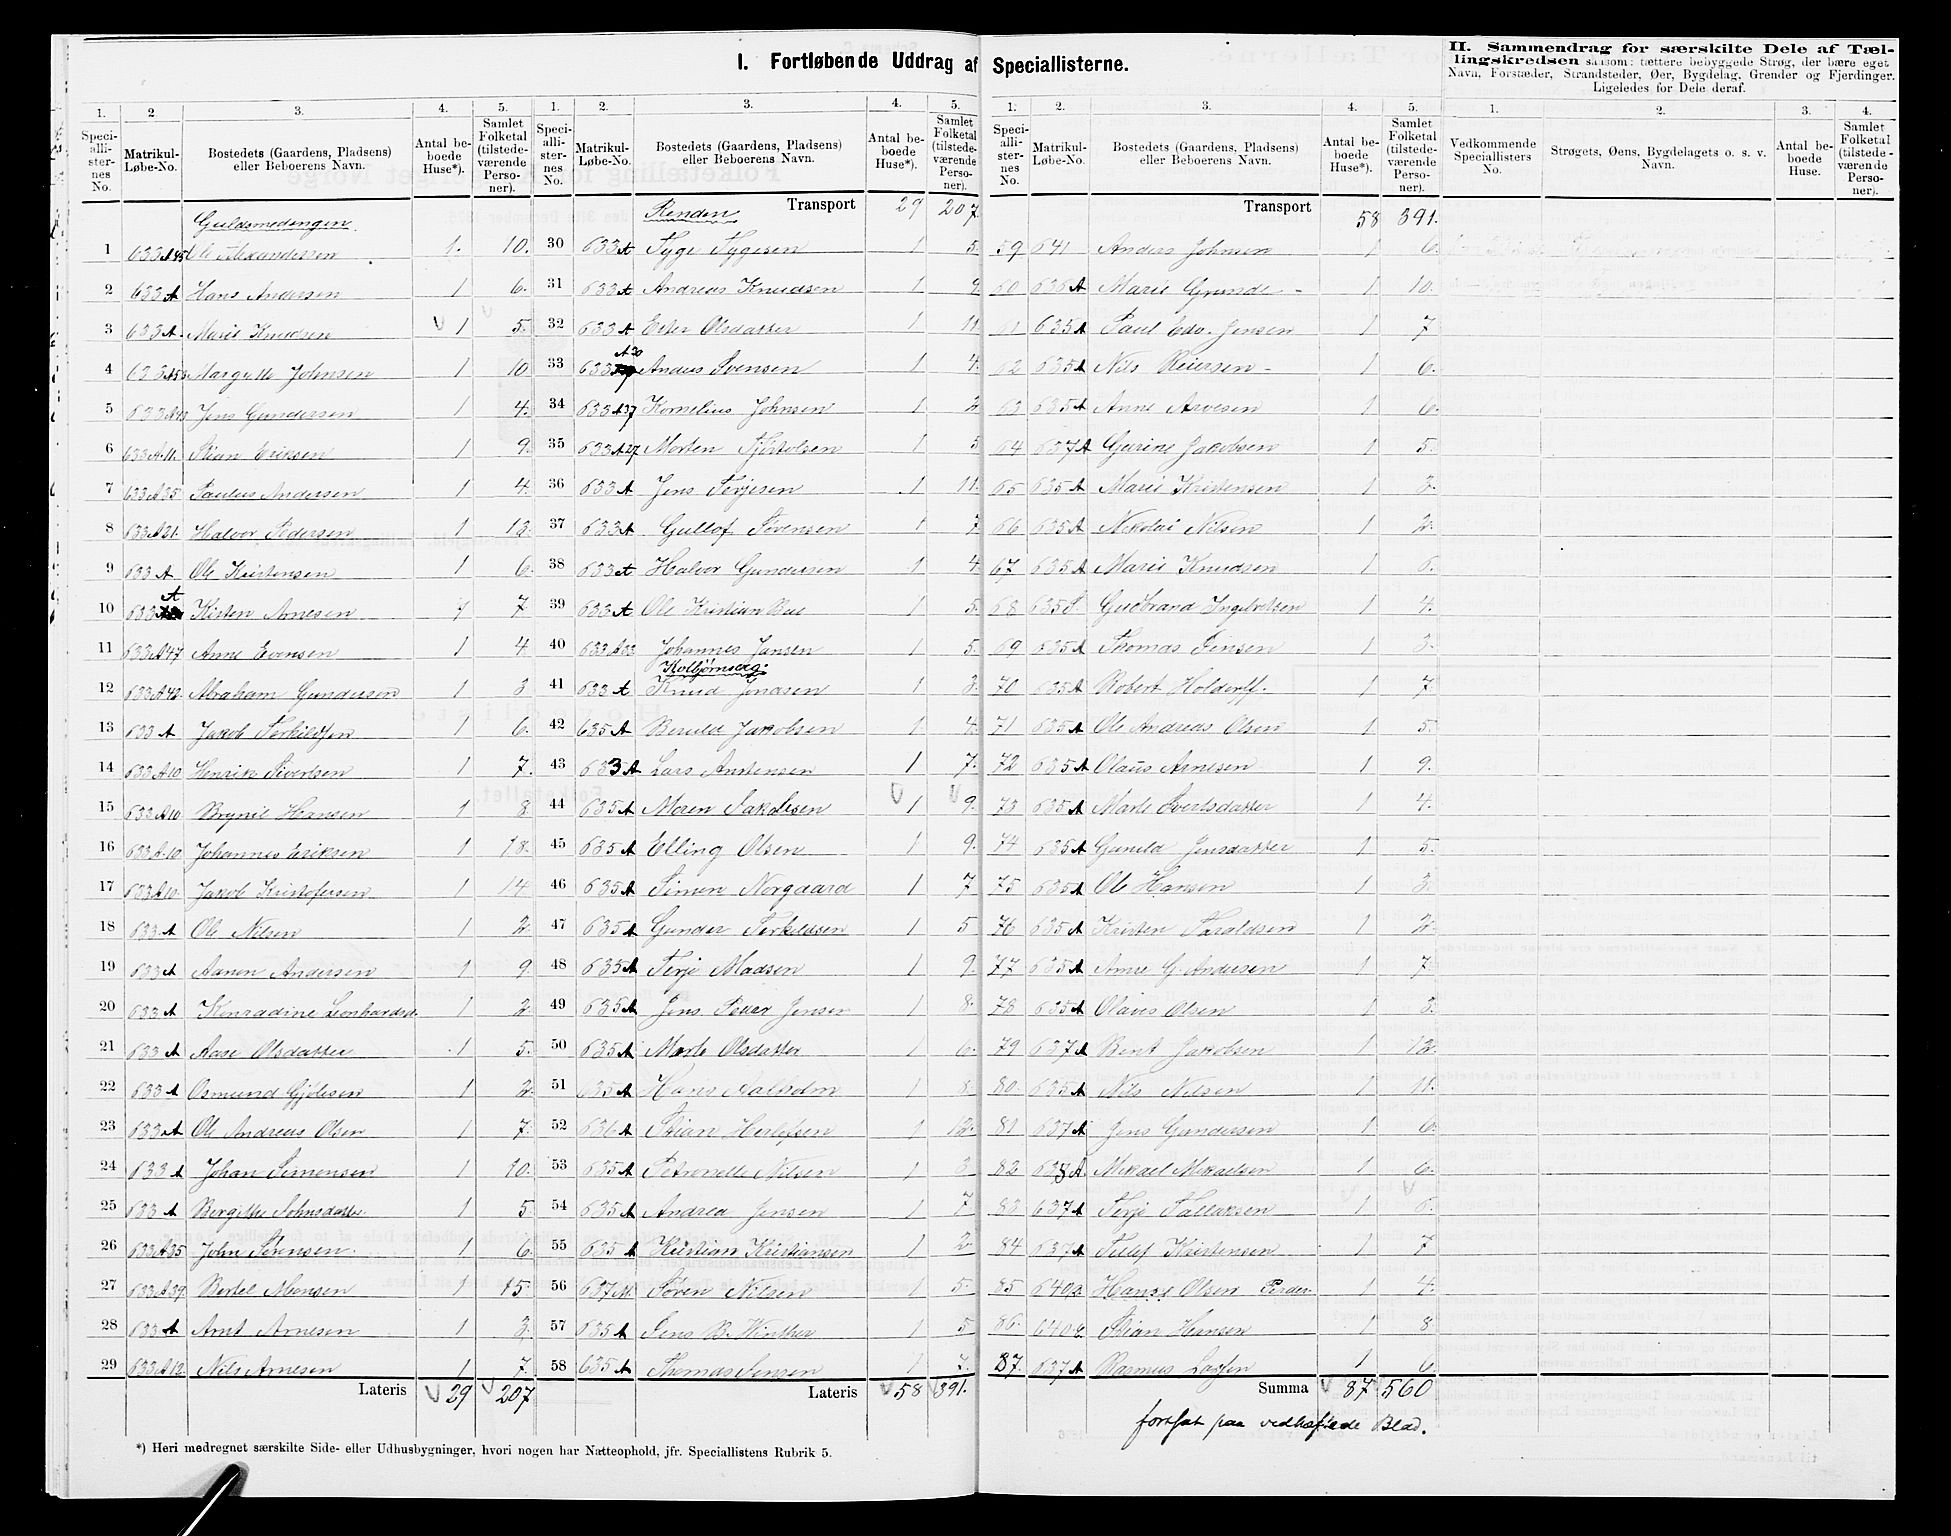 I. Fortløbende Uddrag af Speciallisterne.
II. Sammendrag for særskilte Dele af Tæl-
lingskredsen saasom: tættere bebyggede Strøg, der bære eget
Navn, Forstæder, Strandsteder, Øer, Bygdelag, Grender og Fjerdinger.
Ligeledes for Dele deraf.
1. 2 3. 4. 5. 1. 2. 3. 4. 5. 1. 2. 3. 4. 5. 1. 2. 3. 4.
Speci-alli-ster-nes No. Matrikul-Løbe-No. Bostedets (Gaardens, Pladsens) eller Beboerens Navn. Antal be-boede Huse*). Samlet Folketal (tilstede-værende Perso-ner).
Speci-alli-ster-nes No. Matrikul-Løbe-No. Bostedets (Gaardens, Pladsens) eller Beboerens Navn. Antal be-boede Huse*). Samlet Folketal (tilstede-værende Perso-ner).
Speci-alli-ster-nes No. Matrikul-Løbe-No. Bostedets (Gaardens, Pladsens) eller Beboerens Navn. Antal be-boede Huse*). Samlet Folketal (tilstede-værende Perso-ner).
Vedkommende Speciallisters No. Strøgets, Øens, Bygdelagets o. s. v. Navn. Antal be-boede Huse. Samlet Folketal (tilstede-værende Perso-ner).
Guldsmedengen
1 633 A45 Ole Alexandersen 1. 10.
2 633 A Hans Andersen 1 6.
3 633 A. Marie Knudsen 1 5.
4 633 A53 Margrethe Johnsen 1 10
5 633 A43 Jens Gundersen 1 4.
6 633 A. 11. Stian Eriksen 1 9.
7 633 A35 Paulus Andersen 1 4.
8 633 A21. Halvor Pedersen 1 13.
9 633 A Ole Kristensen 1 6.
10 633 A Kisten Arnesen 1 7.
11 633 A47 Anne Evensen 1 4.
12 633 A42. Abraham Gundersen 1 3
13 633 A Jakob Terkildsen 1 6.
14 633 A10 Henrik Sivertsen 1 7.
15 633 A10 Brynil Hansen 1 8
16 633 A. 10 Johannes Eriksen 1 18.
17 633 A10. Jakob Kristofersen 1 14
18 633 A Ole Nilsen 1 2.
19 633 A Aanen Andersen 1 9.
20 633 A Konradine Leonhardsd. 1 2.
21 633 A Aase Olsdatter 1 5.
22 633 A Osmund Gjølesen 1 2.
23 633 A Ole Andreas Olsen 1 7.
24 633 A Johan Simonsen 1 10.
25 633 A Bergitte Johnsdatter. 1 5.
26 633 A35 John Sørensen. 1 6.
27 633 A39. Bertel Monsen 1 15.
28 633 A Arnt Arnesen 1 3.
29 633 A12. Nils Arnesen 1 7.
Lateris 29 207
Renden
Transport 29 207.
30 633 A Tyge Tygesen 1 5.
31 633 A Andreas Knudsen 1 9.
32 633 A Ester Olsdatter 1 11.
33 633 A30 Anders Svensen 1 4.
34 633 A37 Kornelius Johnsen 1 2
35 633 A27 Morten Tjøstolsen 1 5
36 633 A Jens Terjesen 1 11.
37 633 A Gullof Sørensen 1 7.
38 633 A Halvor Gundersen 1 4.
39 633 A Ole Kristian Boe 1 5.
40 633 A33 Johannes Jansen 1 5.
Kolbjørnsvig.
41 633 A Knud Jonasen 1 3.
42 635 A Beruld Jakobsen 1 4.
43 633 A Lars Anstensen 1 7.
44 635 A Moren Jakobsen 1 9.
45 635 A Elling Olsen 1 9.
46 635 A Simon Norgaard 1 7
47 635 A Gunder Terkildsen 1 5
48 635 A Terje Madsen 1 9.
49 635 A Jens Peder Jensen 1 8.
50 635 A Marte Olsdatter 1 6.
51 635 A Hans Aalholm 1 8.
52 636 A Stian Herlofsen 1 12.
53 635 A Petronelle Nilsen 1 3
54 635 A Andrea Jensen 1 7
55 635 A Kristian Kristiansen 1 2.
56 637 A. Søren Nilsen 1 5.
57 635 A Jens B. Winther 1 5
58 635 A Thomas Jensen 1 7.
Lateris 58 391.
Transport 58 391.
59 641 Anders Johnsen 1 6.
60 636 A Marie Grunde 1 10.
61 635 A Paul Edv. Jensen 1 7
62 635 A Nils Reiersen 1 6.
63 635 A Anne Arvesen 1 6.
64 637 A Gurine Jakobsen 1 5.
65 635 A Marie Kristensen 1 3.
66 635 A Nikolai Nilsen 1 2.
67 635 A Marie Knudsen 1 6.
68 635 Gudbrand Ingebretsen 1 4.
69 635 A Thomas Jensen 1 3.
70 635 A Robert Holdorff. 1 7.
71 635 A Ole Andreas Olsen 1 5.
72 635 A Olaus Arnesen 1 9.
73 635 A Marte Evertsdatter 1 4.
74 635 A Gunild Jensdatter 1 5.
75 635 A Ole Hansen 1 3.
76 635 A Kristen Taraldsen 1 2.
77 635 A Anne G. Andersen 1 7.
78 635 A Olaves Olsen 1 3.
79 637 A Bent Jakobsen 1 12
80. 635 A Nils Nilsen 1 11.
81 637 A Jens Gundersen 1 6.
82 638 A. Mikael Mikaelsen 1 6.
83 637 A Terje Tallaksen 1 6.
84 637 A Tellef Kristensen 1 7
85 640 a. Hans Olsen Perder. 1 4.
86. 640 Stian Hansen 1 8.
87. 637 A Rasmus Lassen 1 6.
Summa 87 560
fortsat paa vedhæftede Blad.
*) Heri medregnet særskilte Side- eller Udhusbygninger, hvori nogen har Natteophold, jfr. Speciallistens Rubrik 5.